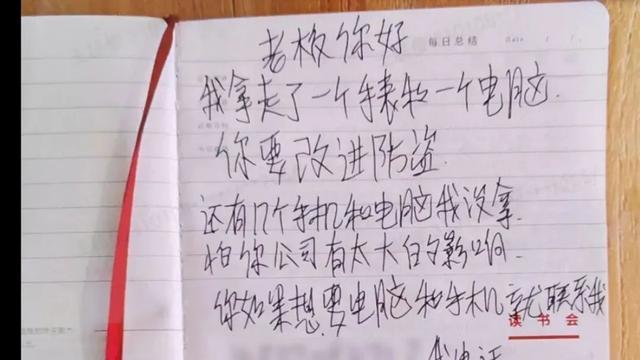 每日总结 Date
老板你好
我拿走了一个手表和一个电脑.
你要改进防盗.
还有17个手机和电脑我没拿.
怕你公司有太大白的影响.
你如果想要电脑和手机就联系我
读书会
我电话